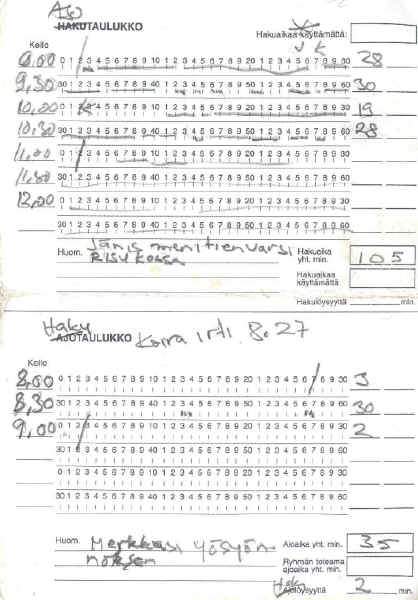 Ajo
HAKUTAULUKKO
Hakuaikaa käyttämättä:
Kello
J K
0 1 2 3 4 5 6 7 8 9 10 1 2 3 4 5 6 7 8 9 20 1 2 3 4 5 6 7 8 9 30 28
9,30 30 1 2 3 4 5 6 7 8 9 40 1 2 3 4 5 6 7 8 9 50 1 2 3 4 5 6 7 8 9 60 30
10,00 0 1 2 3 4 5 6 7 8 9 10 1 2 3 4 5 6 7 8 9 20 1 2 3 4 5 6 7 8 9 30 19
10,30 30 1 2 3 4 5 6 7 8 9 40 1 2 3 4 5 6 7 8 9 50 1 2 3 4 5 6 7 8 9 60 28
11,00 0 1 2 3 4 5 6 7 8 9 10 1 2 3 4 5 6 7 8 9 20 1 2 3 4 5 6 7 8 9 30
11,30 30 1 2 3 4 5 6 7 8 9 40 1 2 3 4 5 6 7 8 9 50 1 2 3 4 5 6 7 8 9 60
12,00 0 1 2 3 4 5 6 7 8 9 10 1 2 3 4 5 6 7 8 9 20 1 2 3 4 5 6 7 8 9 30
30 1 2 3 4 5 6 7 8 9 40 1 2 3 4 5 6 7 8 9 50 1 2 3 4 5 6 7 8 9 60
Huom. Jänis meni tienvarsi
Hakuaika yht. min. 105
Risu
Hakuaikaa käyttämättä
Hakulöysyyttä min.
Haku
AJOTAULUKKO Koira irti 8.27
Kello
8,00 0 1 2 3 4 5 6 7 8 9 10 1 2 3 4 5 6 7 8 9 20 1 2 3 4 5 6 7 8 9 30 3
8,30 30 1 2 3 4 5 6 7 8 9 40 1 2 3 4 5 6 7 8 9 50 1 2 3 4 5 6 7 8 9 60 30
9,00 0 1 2 3 4 5 6 7 8 9 10 1 2 3 4 5 6 7 8 9 20 1 2 3 4 5 6 7 8 9 30 2
30 1 2 3 4 5 6 7 8 9 40 1 2 3 4 5 6 7 8 9 50 1 2 3 4 5 6 7 8 9 60
0 1 2 3 4 5 6 7 8 9 10 1 2 3 4 5 6 7 8 9 20 1 2 3 4 5 6 7 8 9 30
30 1 2 3 4 5 6 7 8 9 40 1 2 3 4 5 6 7 8 9 50 1 2 3 4 5 6 7 8 9 60
Huom. Merkkasi yösyön
Ajoaika yht. min. 35
nöksen
Ryhmän toteama ajoaika yht. min.
Haku
Ajolöysyyttä 2 min.